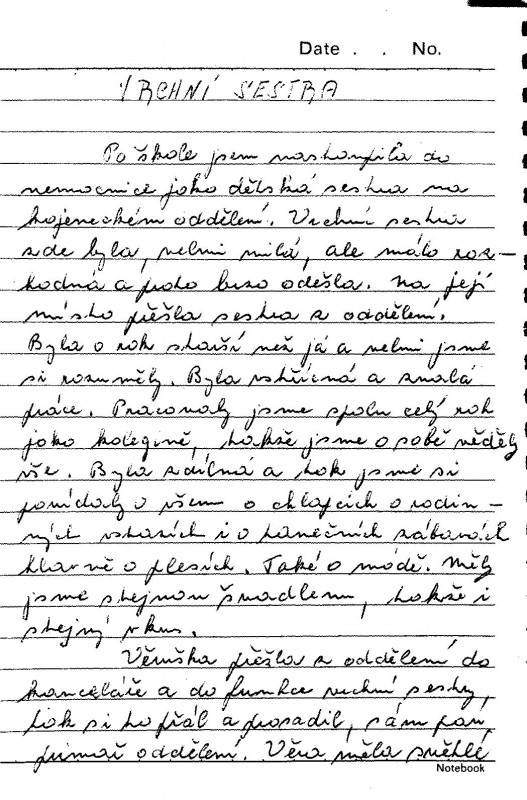 Date . . No.
VRCHNÍ SESTRA
Po škole jsem nastoupila do
nemocnice jako dětská sestra na
kojeneckém oddělení. Vrchní sestra
zde byla, velmi milá, ale málo roz-
hodná a proto brzo odešla. Na její
místo přešla sestra z oddělení.
Byla o rok starší než já a velmi jsme
si rozuměly. Byla vstřícná a znalá
práce. Pracovaly jsme spolu celý rok
jako kolegině, takže jsme o sobě věděly
vše. Byla sdílná a tak jsme si
povídaly o všem o chlapcích o rodin-
ných vztazích i o tanečních zábavách
hlavně o plesích. Také o módě. Měly
jsme stejnou švadlenu, takže i
stejný vkus.
Věruška přešla z oddělení do
kanceláře a do funkce vrchní sestry,
tak si to přál a prosadil, sám pan
primář oddělení. Věra měla světlé
Notebook